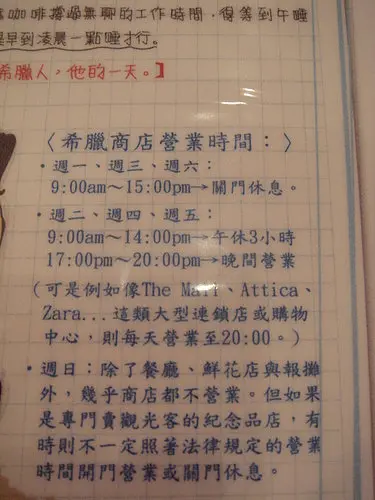 咖啡撐過無聊的工作時間，得等到午睡
早到凌晨一點睡才行。
希臘人，他的一天。】
〈希臘商店營業時間：〉
·週一、週三、週六：
9:00am～15:00pm→關門休息。
·週二、週四、週五：
9:00am～14:00pm→午休3小時
17:00pm～20:00pm→晚間營業
(可是例如像The Mall、Attica、
Zara...這類大型連鎖店或購物
中心，則每天營業至20:00。)
·週日：除了餐廳、鮮花店與報攤
外，幾乎商店都不營業。但如果
是專門賣觀光客的紀念品店，有
時則不一定照著法律規定的營業
時間開門營業或關門休息。